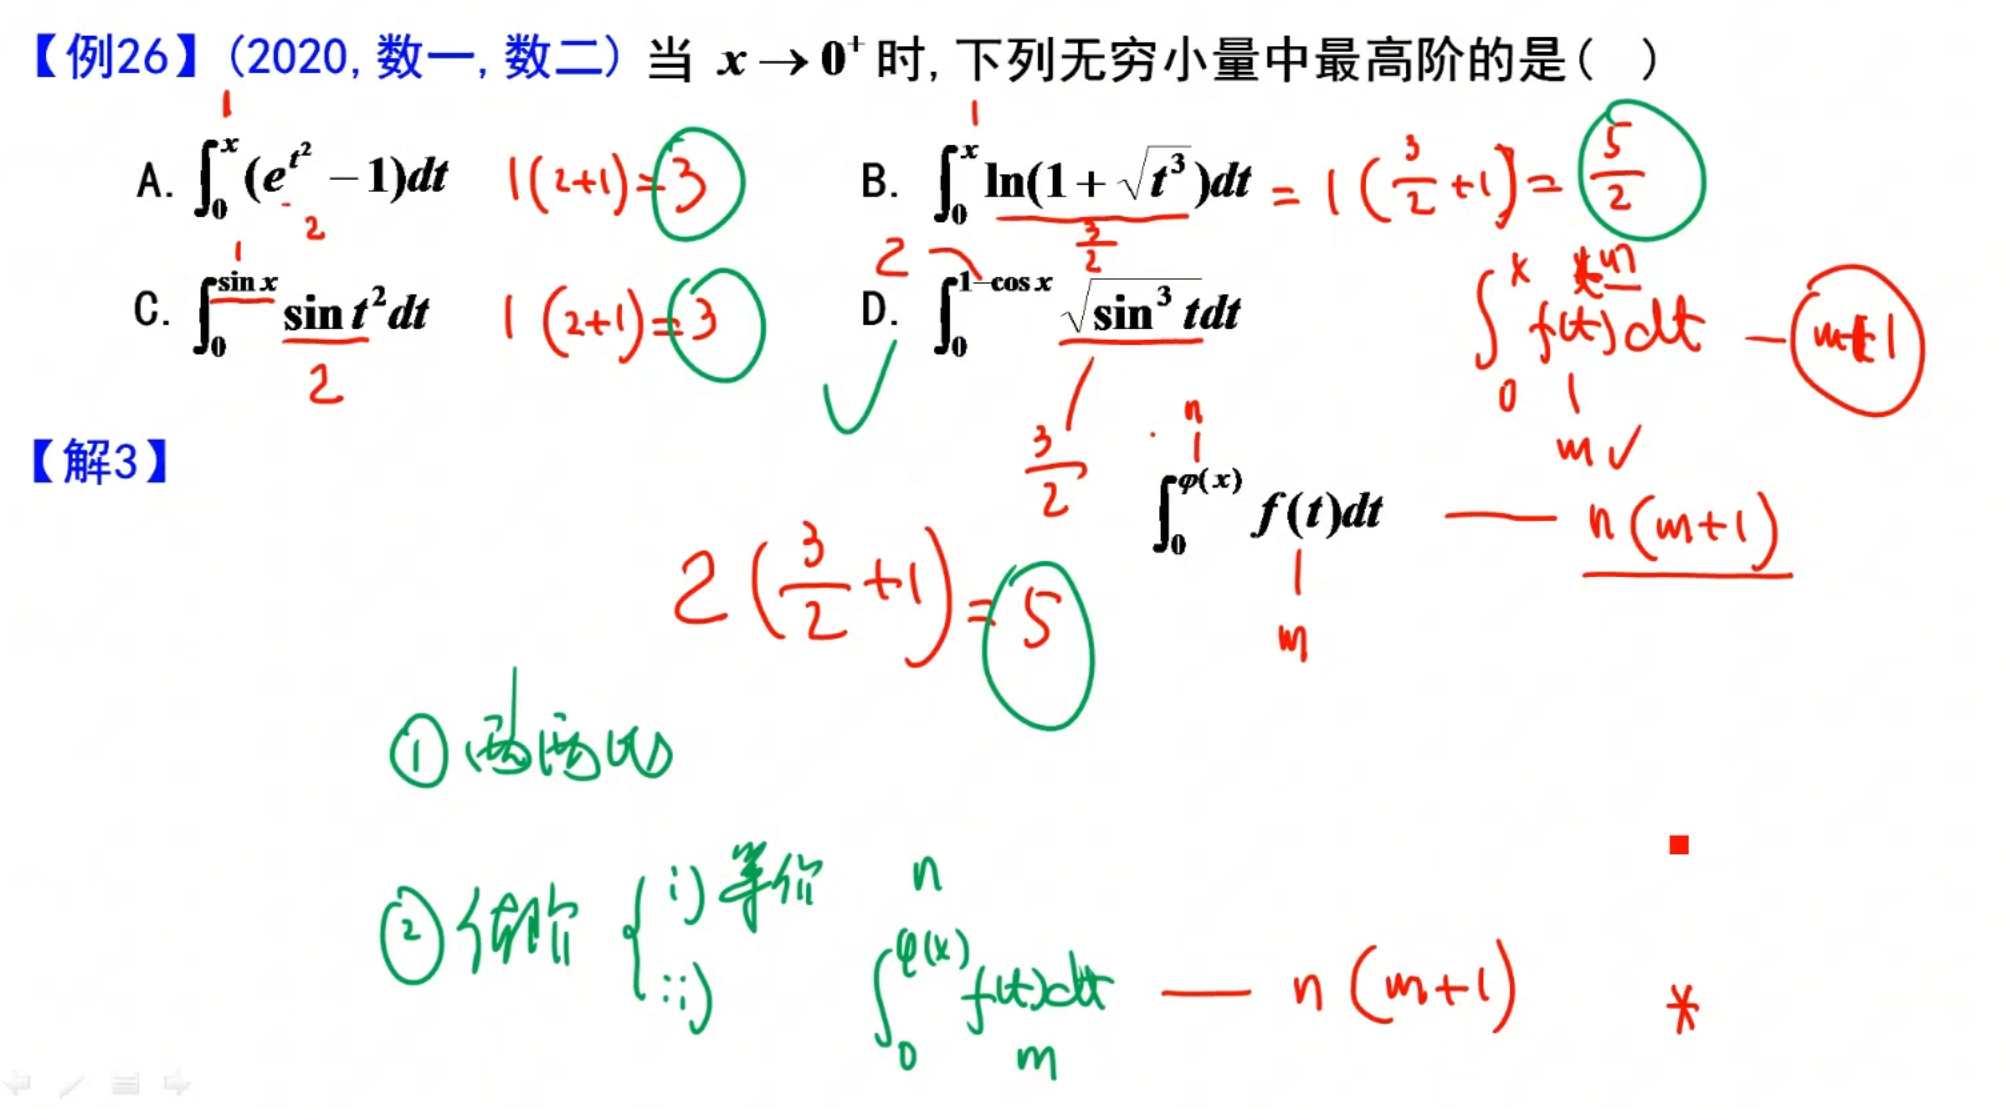 【例26】(2020,数一,数二) 当 x→0⁺ 时,下列无穷小量中最高阶的是( )
1
A. ∫₀ˣ (e^{t²} − 1)dt 1(2+1)=3
2
1
B. ∫₀ˣ ln(1+√t³)dt = 1(3/2+1)= 5/2
3/2
1
C. ∫₀^{sin x} sin t² dt 1(2+1)=3
2
2
D. ∫₀^{1−cos x} √sin³ t dt
3/2
∫₀ˣ f(t)dt — m+1
m ✓
【解3】
n
∫₀^{φ(x)} f(t)dt — n(m+1)
m
2(3/2+1)=5
① 两两比
② 定阶 { i) 等价
ii)
n
∫₀^{φ(x)} f(t)dt — n(m+1) *
m